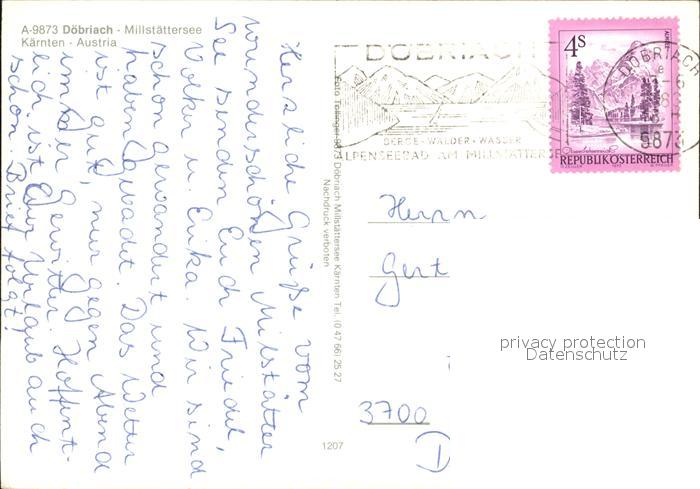 A-9873 Döbriach - Millstättersee
Kärnten - Austria
Herzliche Grüße vom
wunderschönen Millstätter
See senden Euch Friedel,
Volker u. Erika. Wir sind
schon gewandert und
haben gebadet. Das Wetter
ist gut, nur gegen Abend
immer Gewitter. Hoffent-
lich ist Euer Urlaub auch
schön. Brief folgt!
Foto Tollinger 9873 Döbriach Millstättersee Kärnten Tel. (0 47 66) 25 27
Nachdruck verboten
1207
DÖBRIACH
BERGE - WÄLDER - WASSER
ALPENSEEBAD AM MILLSTÄTTERSEE
4S
REPUBLIK ÖSTERREICH
DÖBRIACH
9873
Herrn
Gert
3700
D
privacy protection
Datenschutz